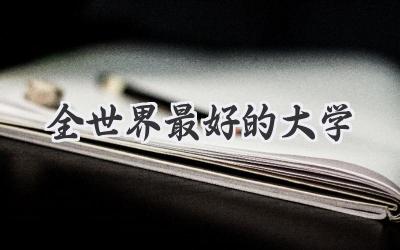 全世界最好的大学